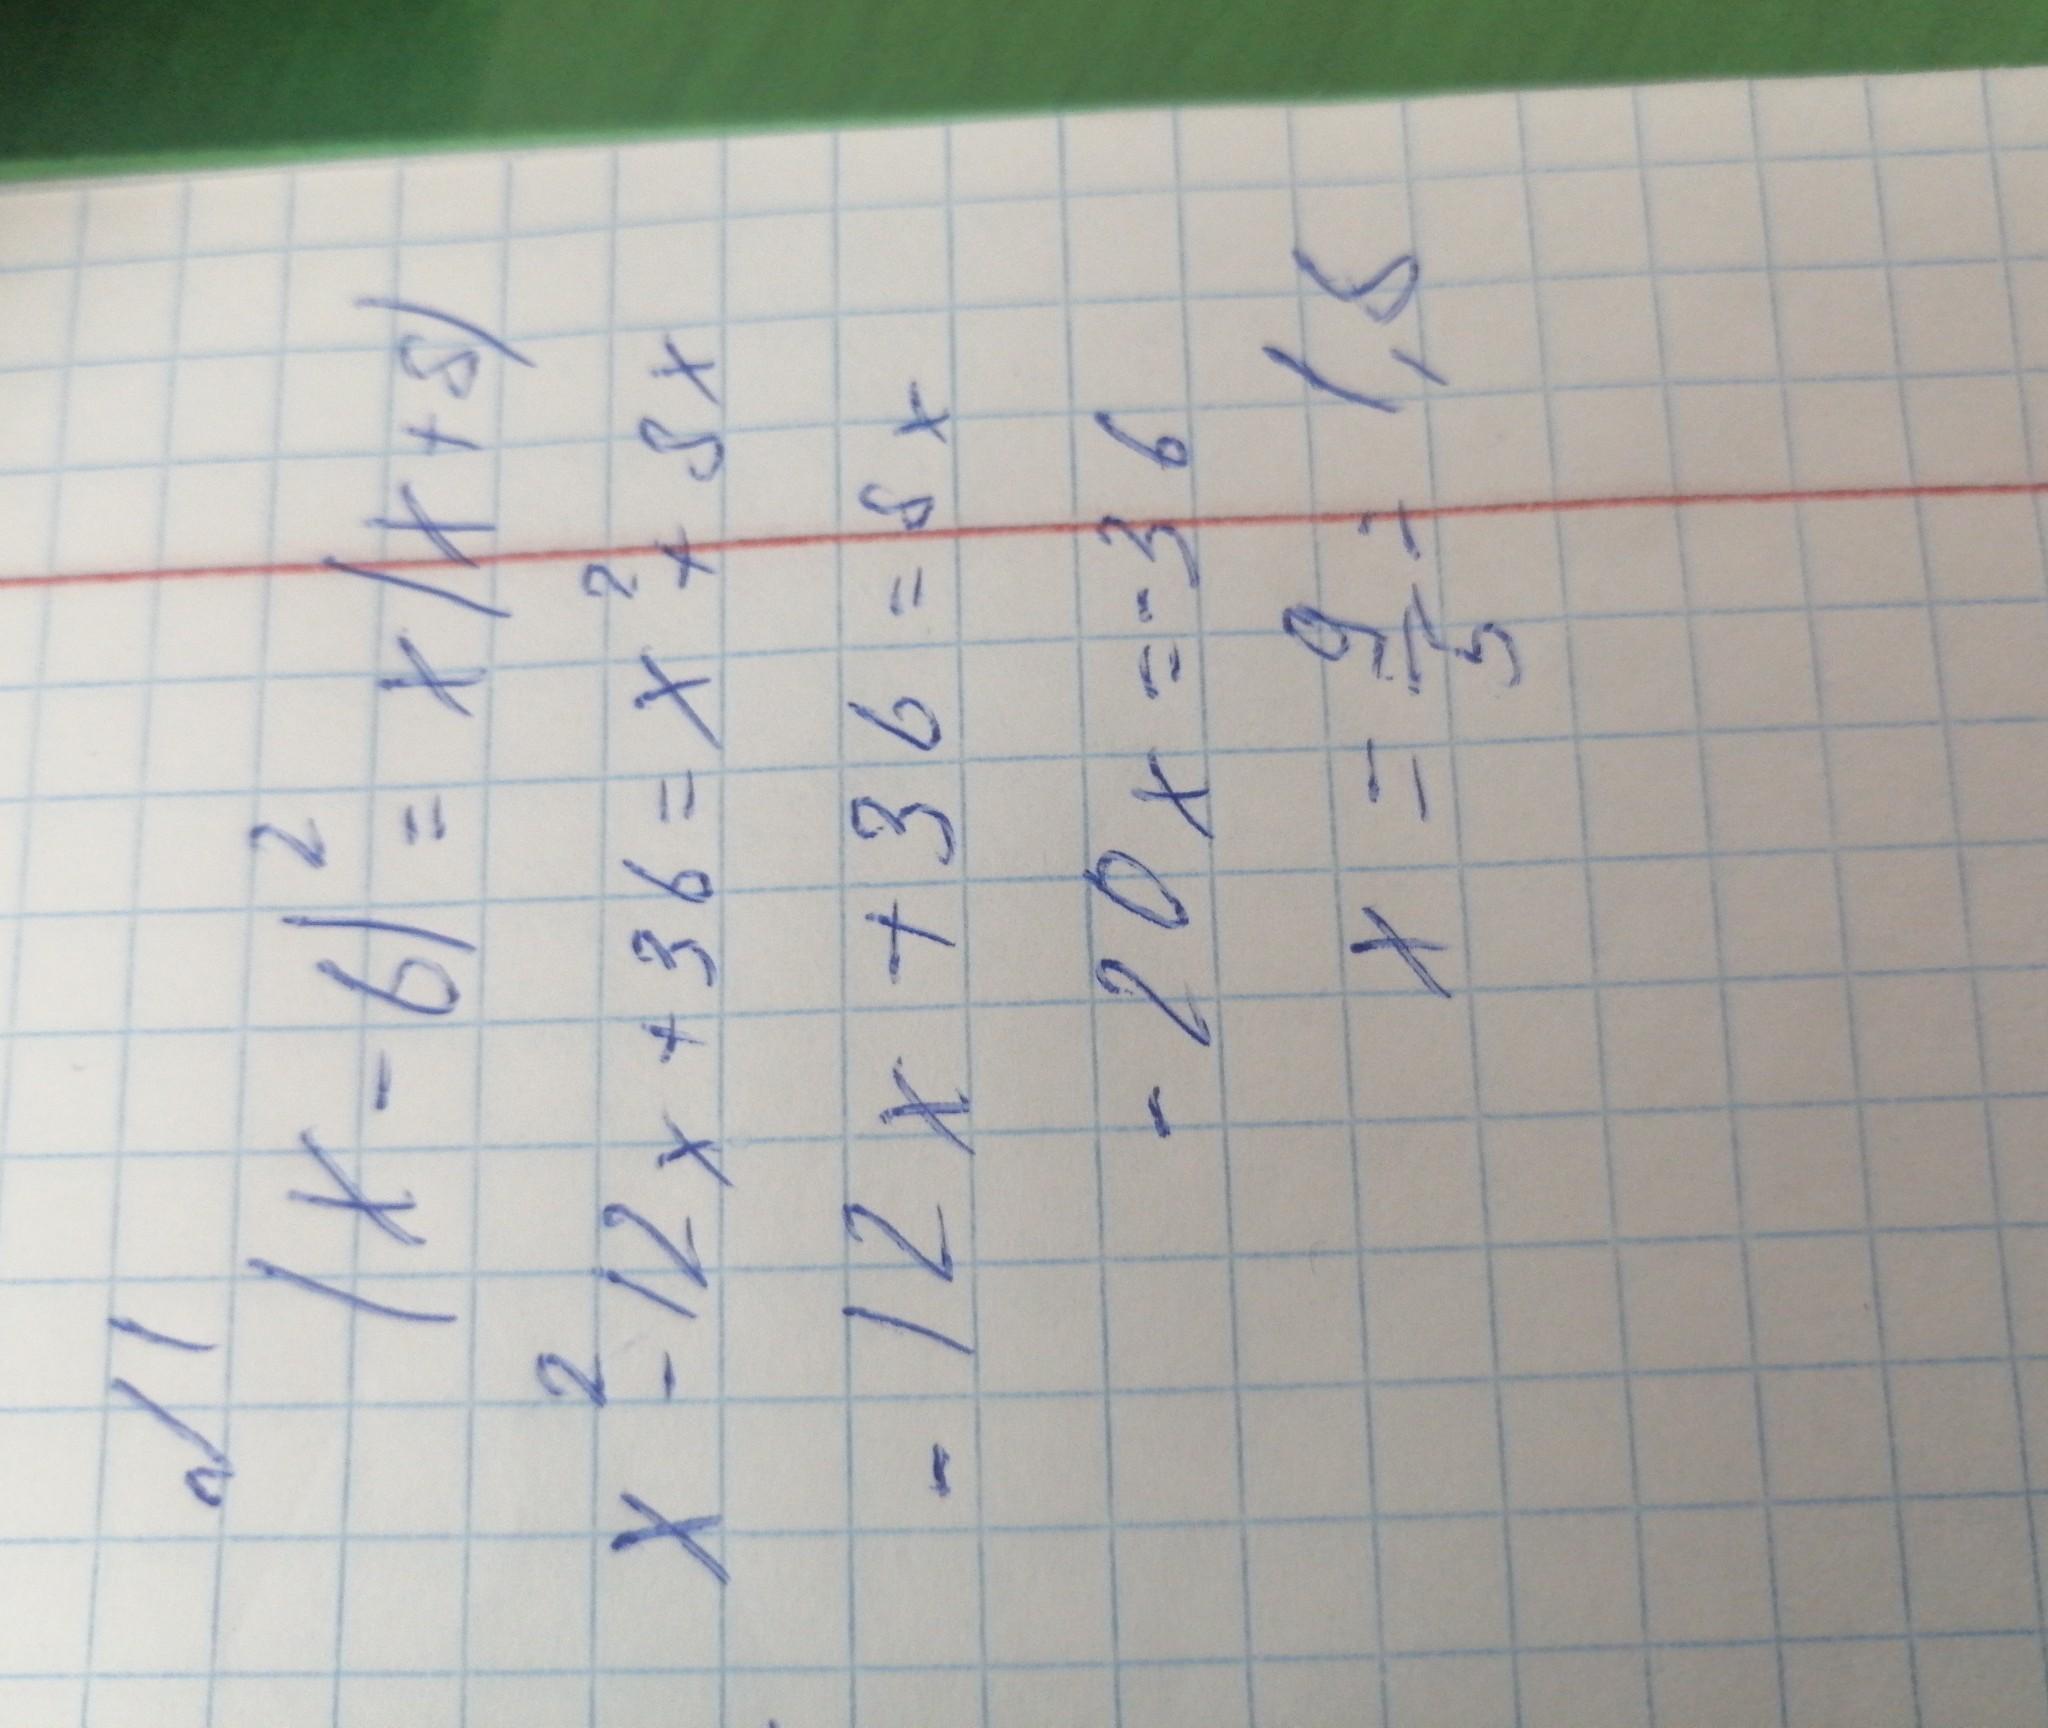 №1
(x - 6)² = x(x + 8)
x² - 12x + 36 = x² + 8x
- 12x + 36 = 8x
- 20x = -36
x = 9/5 = 1,8